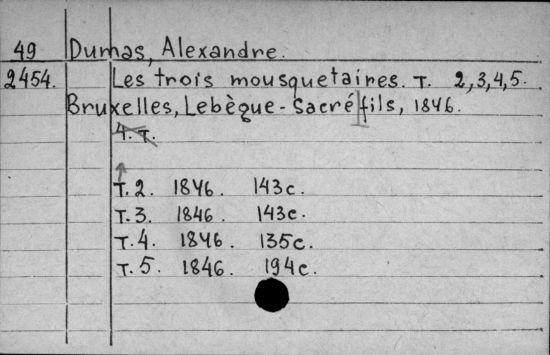 49 Dumas, Alexandre.
2454. Les trois mousquetaires. T. 2,3,4,5.
Bruxelles, Lebègue - Sacré fils, 1846.
4. T.
T. 2. 1846. 143c.
T. 3. 1846. 143c.
T. 4. 1846. 135c.
T. 5. 1846. 194c.